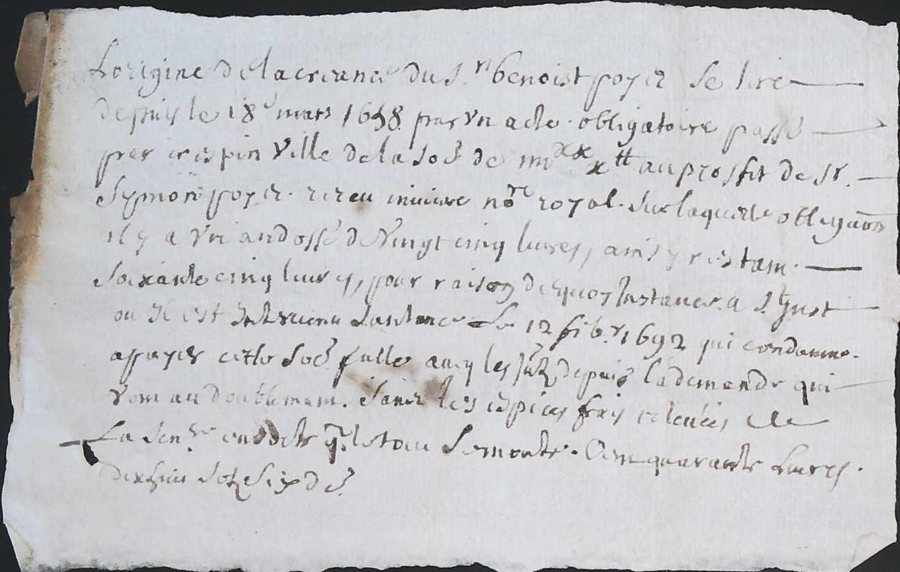 Lorigine de la creance du Sr benoist poyet se tire
depuis le 18e mars 1658 par un acte obligatoire passé
par crespin Ville de la soe de iiiixx x tt au proffit de Sr
Symon poyet receu nore royal sur laquelle obligaon
il y a un andossé de Vingt cinq livres, ainsy restant
soixante cinq livres, pour raison dequoy Instance a St Just
ou il est Intervenu santance le 12 1692 qui condamne
a payer cette soe fulle avecq les depuis la demande qui
vont au doublement. Sans les espices frais de
la sence en sorte que le tout se monte Cent quarante livres
dixhuit solz six ds